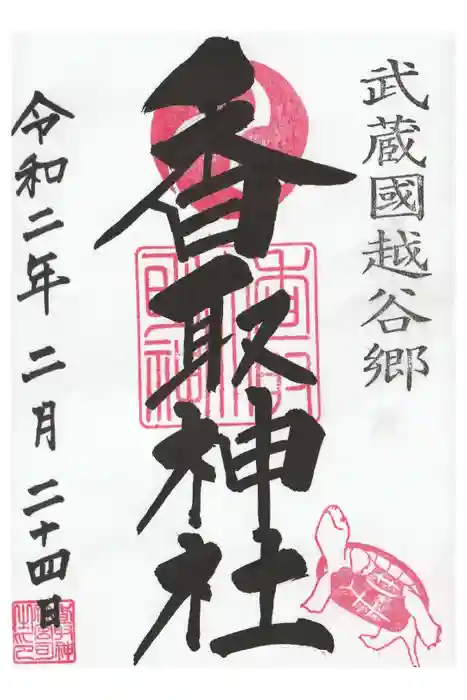 武蔵國越谷郷
香取神社
令和二年二月二十四日